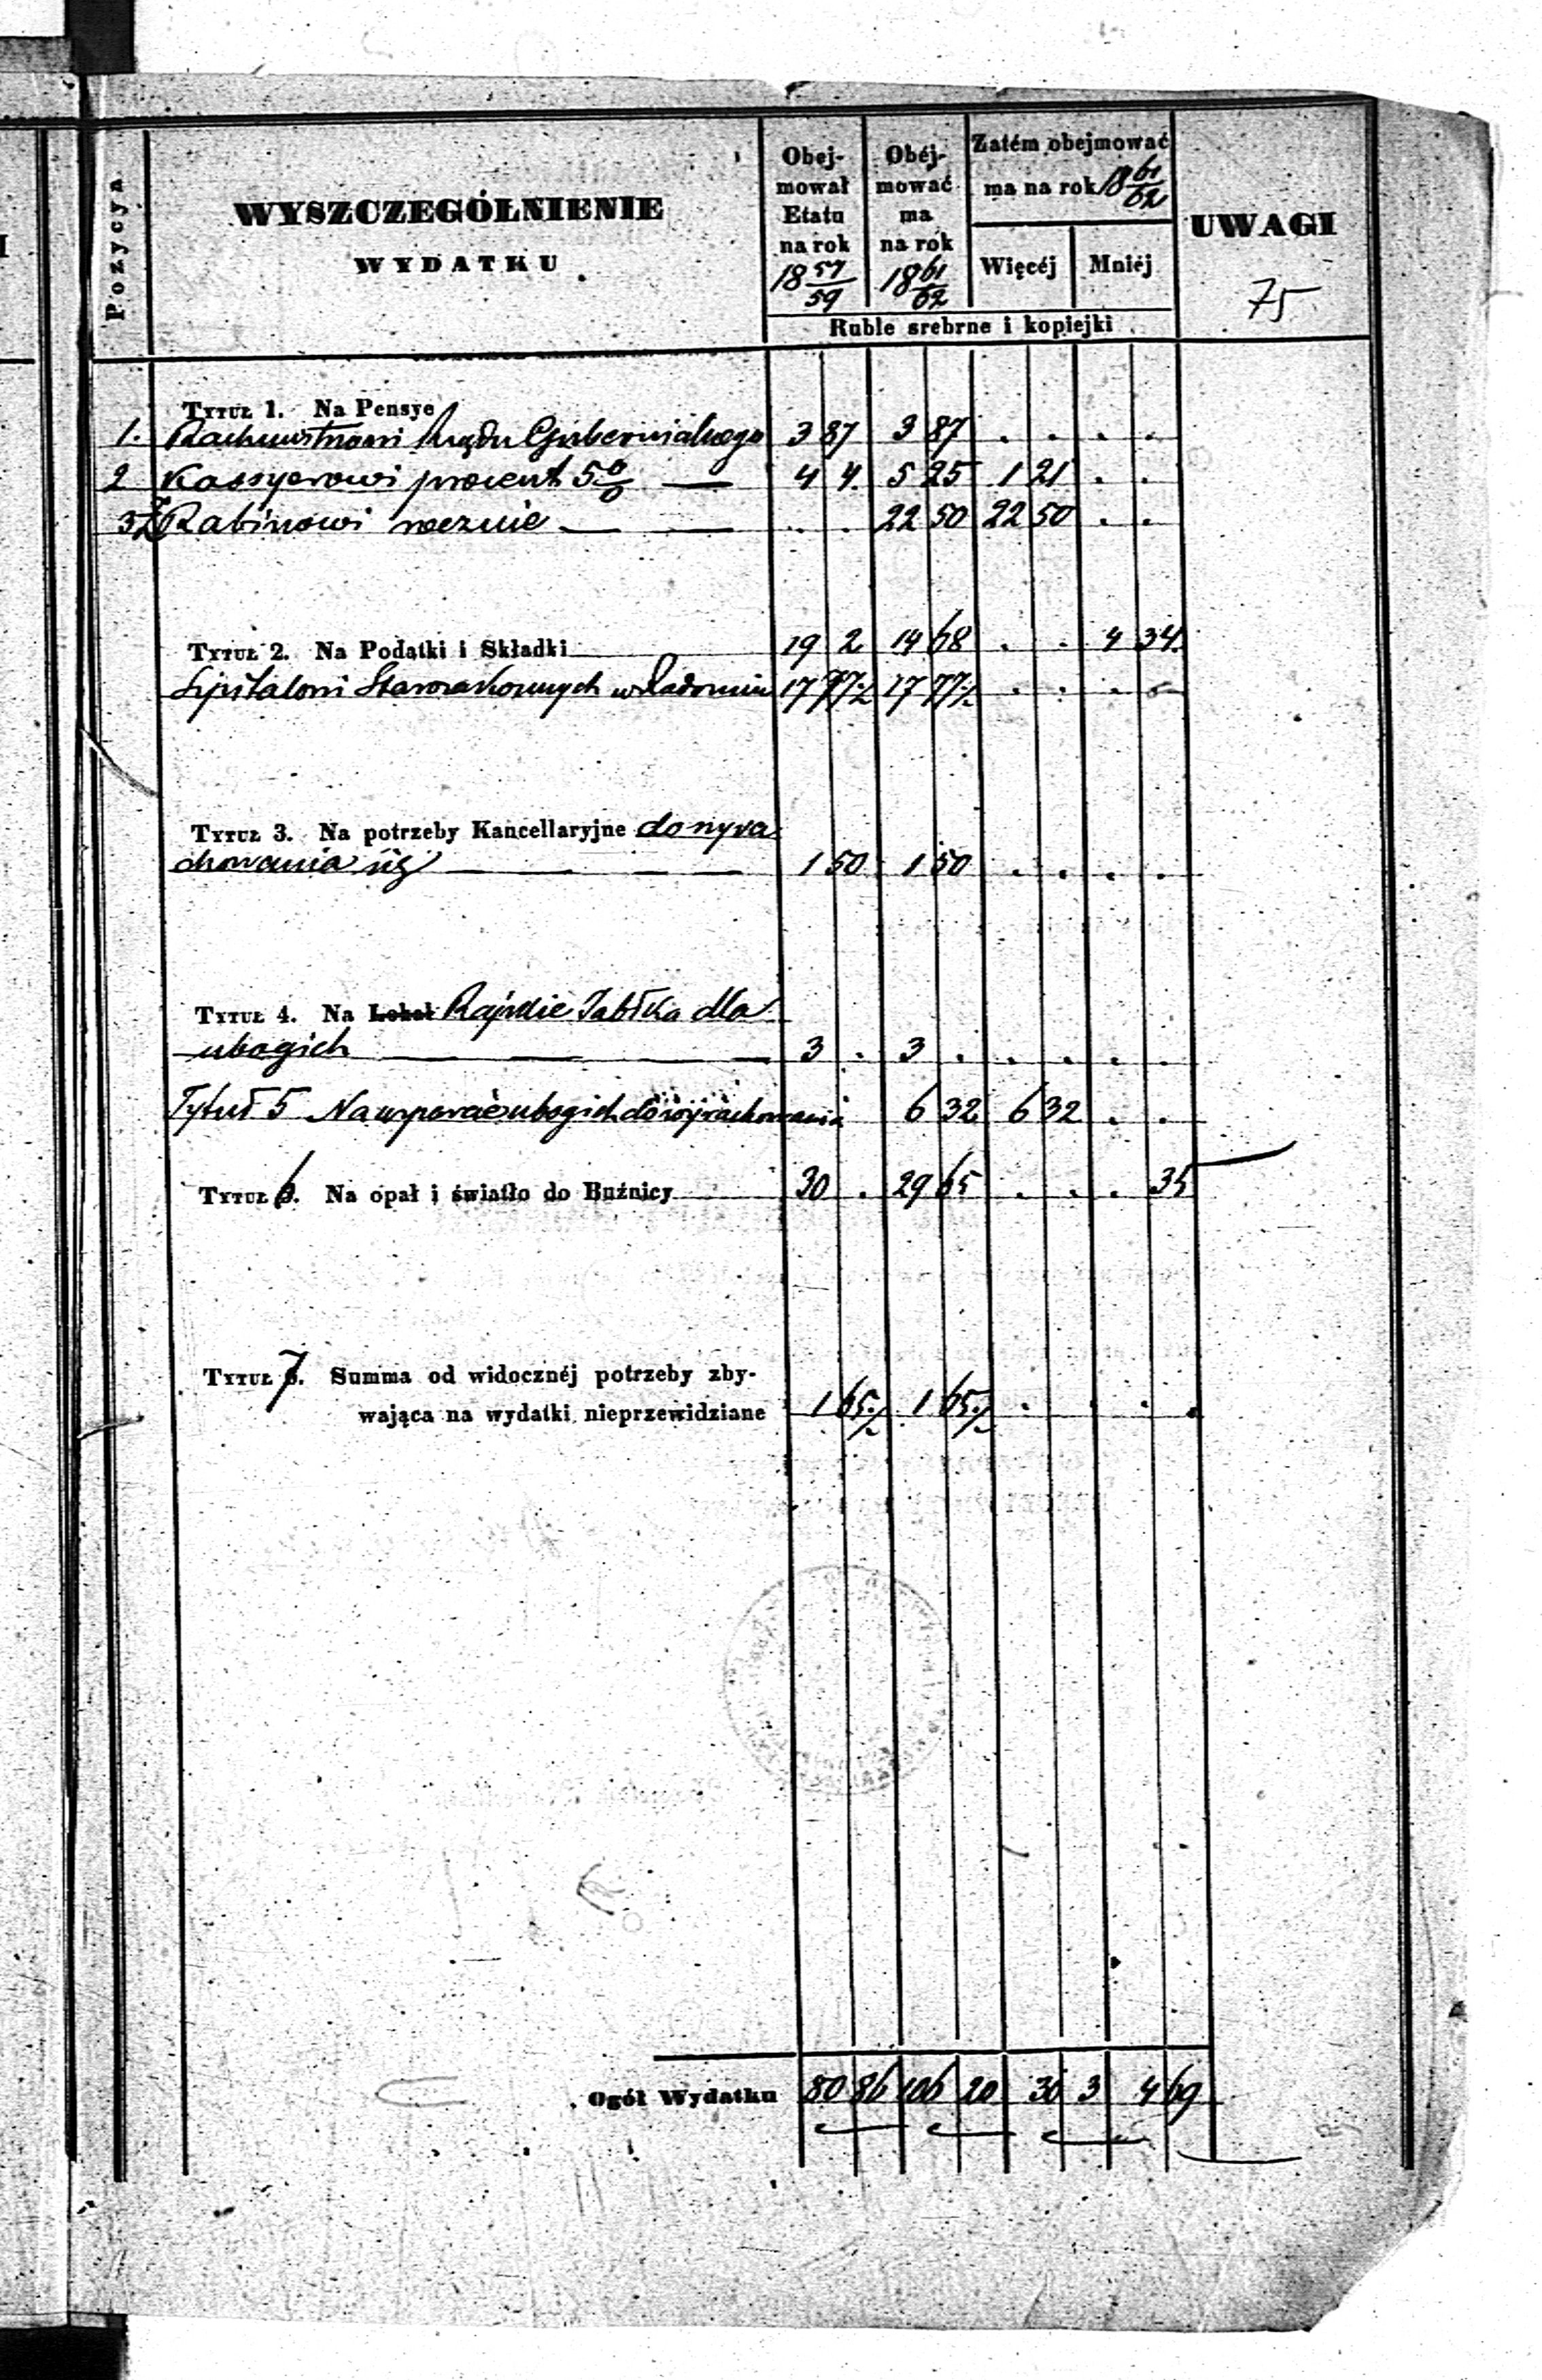 Pozycya
WYSZCZEGÓLNIENIE
WYDATKU
Obej-
mował
Etatu
na rok
18 57/59
Obéj-
mować
ma
na rok
18 61/62
Zatém obejmować
ma na rok 18 61/62
Więcéj Mniéj
UWAGI
75
Ruble srebrne i kopiejki
Tytuł 1. Na Pensye
1. Rządu Gubernialnego 3 87 3 87 . . . .
2 Kassyerowi procent 5 % — 4 4. 5 25 1 21 . .
3 Rabinowi rocznie — — . . 22 50 22 50 . .
Tytuł 2. Na Podatki i Składki 19 2 14 68 . . 4 34
Starozakonnych w Radomiu 17 77 ½ 17 77 ½ . . . .
Tytuł 3. Na potrzeby Kancellaryjne do wyra
chowania się — — — — 1 50 1 50 . . . .
Tytuł 4. Na Lokal Rajskie Jabłka dla
ubogich — — — — 3 . 3 . . . . .
Tytuł 5 Na wsparcie ubogich do wyrachowania 6 32 6 32 . .
Tytuł 6. Na opał i światło do Buźnicy 30 . 29 65 . . . 35
Tytuł 7. Summa od widocznéj potrzeby zby-
wająca na wydatki nieprzewidziane 1 65 ½ 1 65 ½ . . . .
Ogół Wydatku 80 86 106 20 30 3 4 69